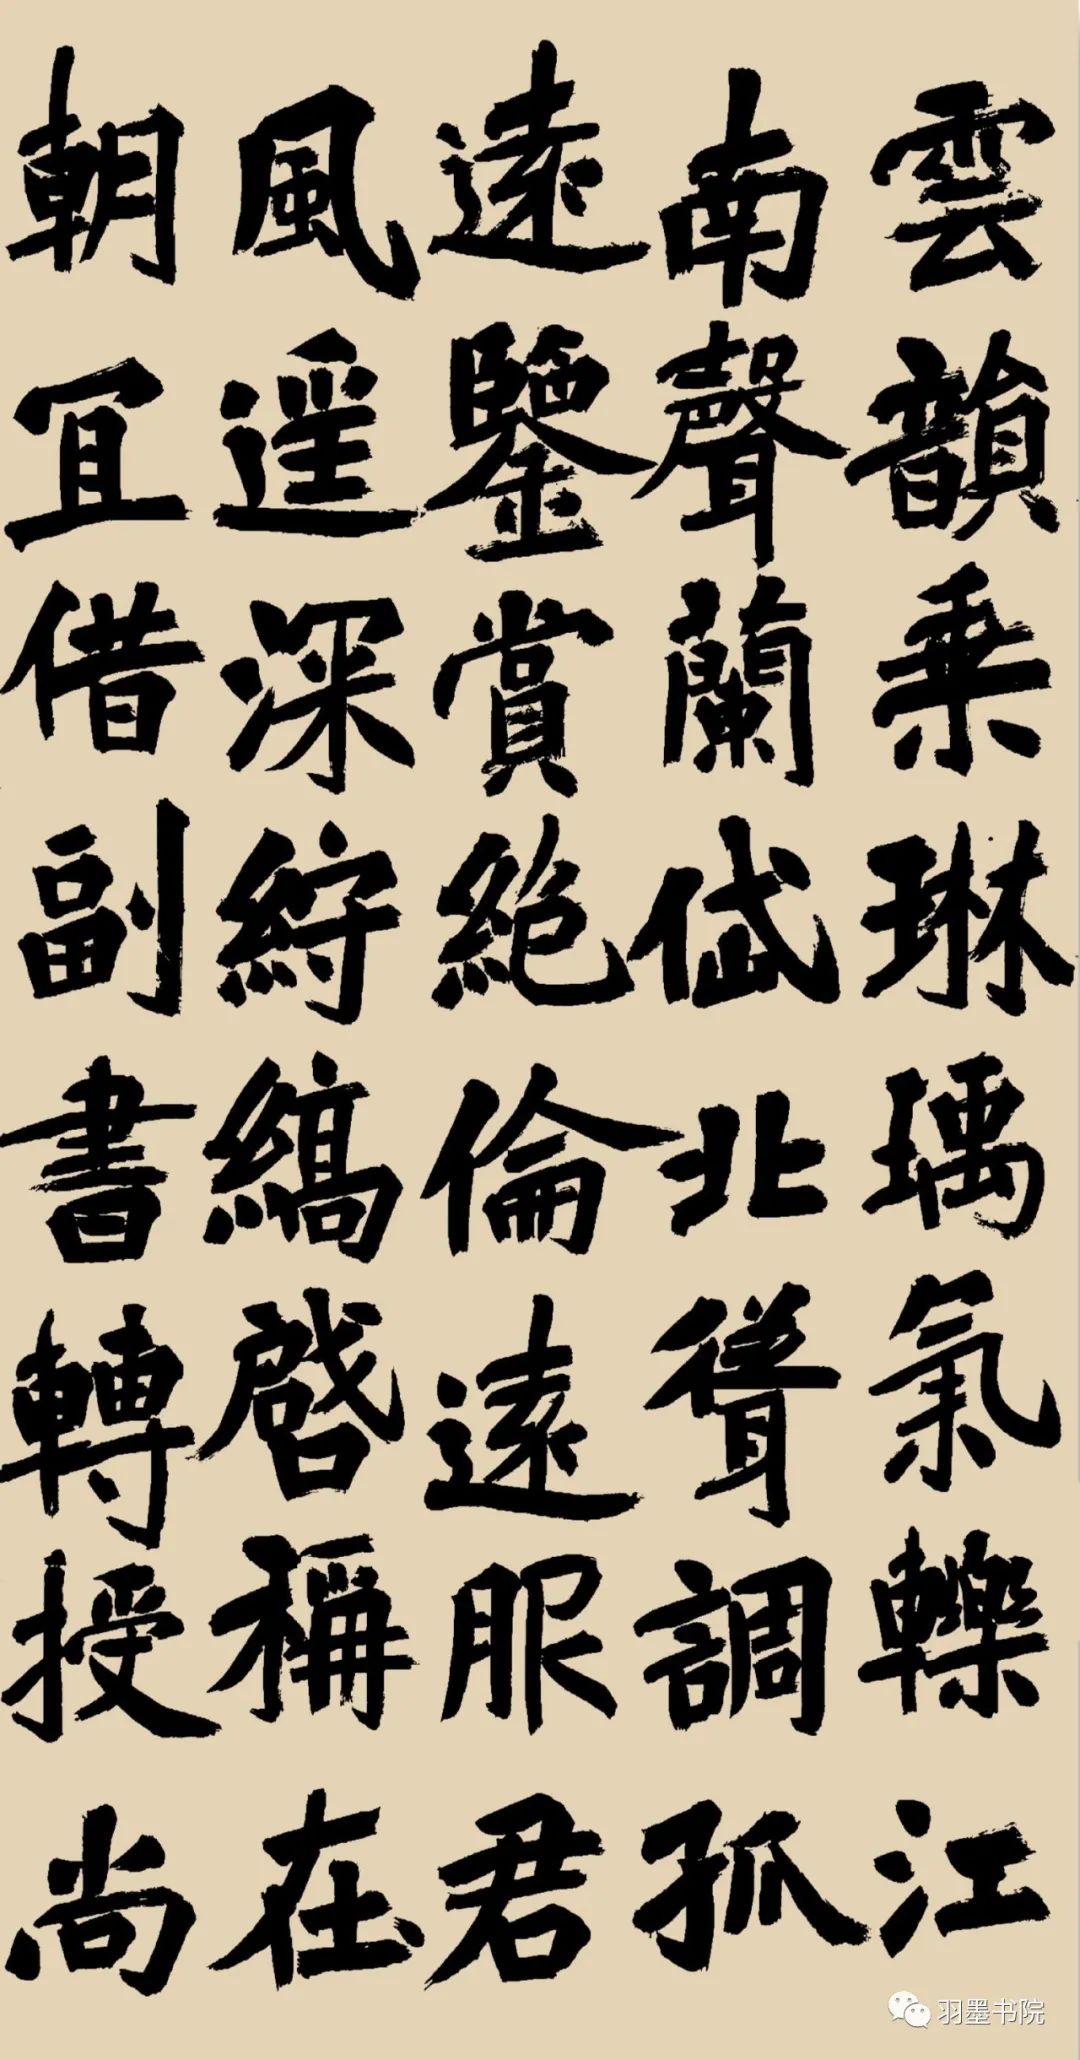 雲韻乗琳瑀氣轢江
南聲蘭岱北聳調孤
遠鑒賞絶倫遠服君
風遥深紵縞啓稱在
朝宜借副書轉授尚
羽墨书院